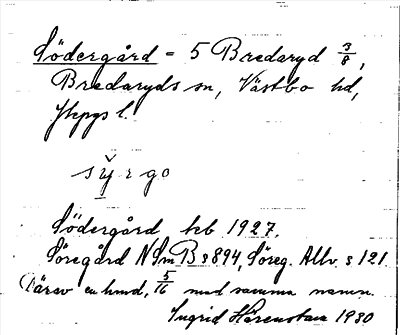 Södergård = 5 Bredaryd 3/8,
Bredaryds sn, Västbo hd,
Jkpgs l.
Södergård kb 1927.
Söregård NSmB s 894, Söreg. Allv. s 121
Därav en hmd, 5/16 med samma namn.
Ingrid 1930